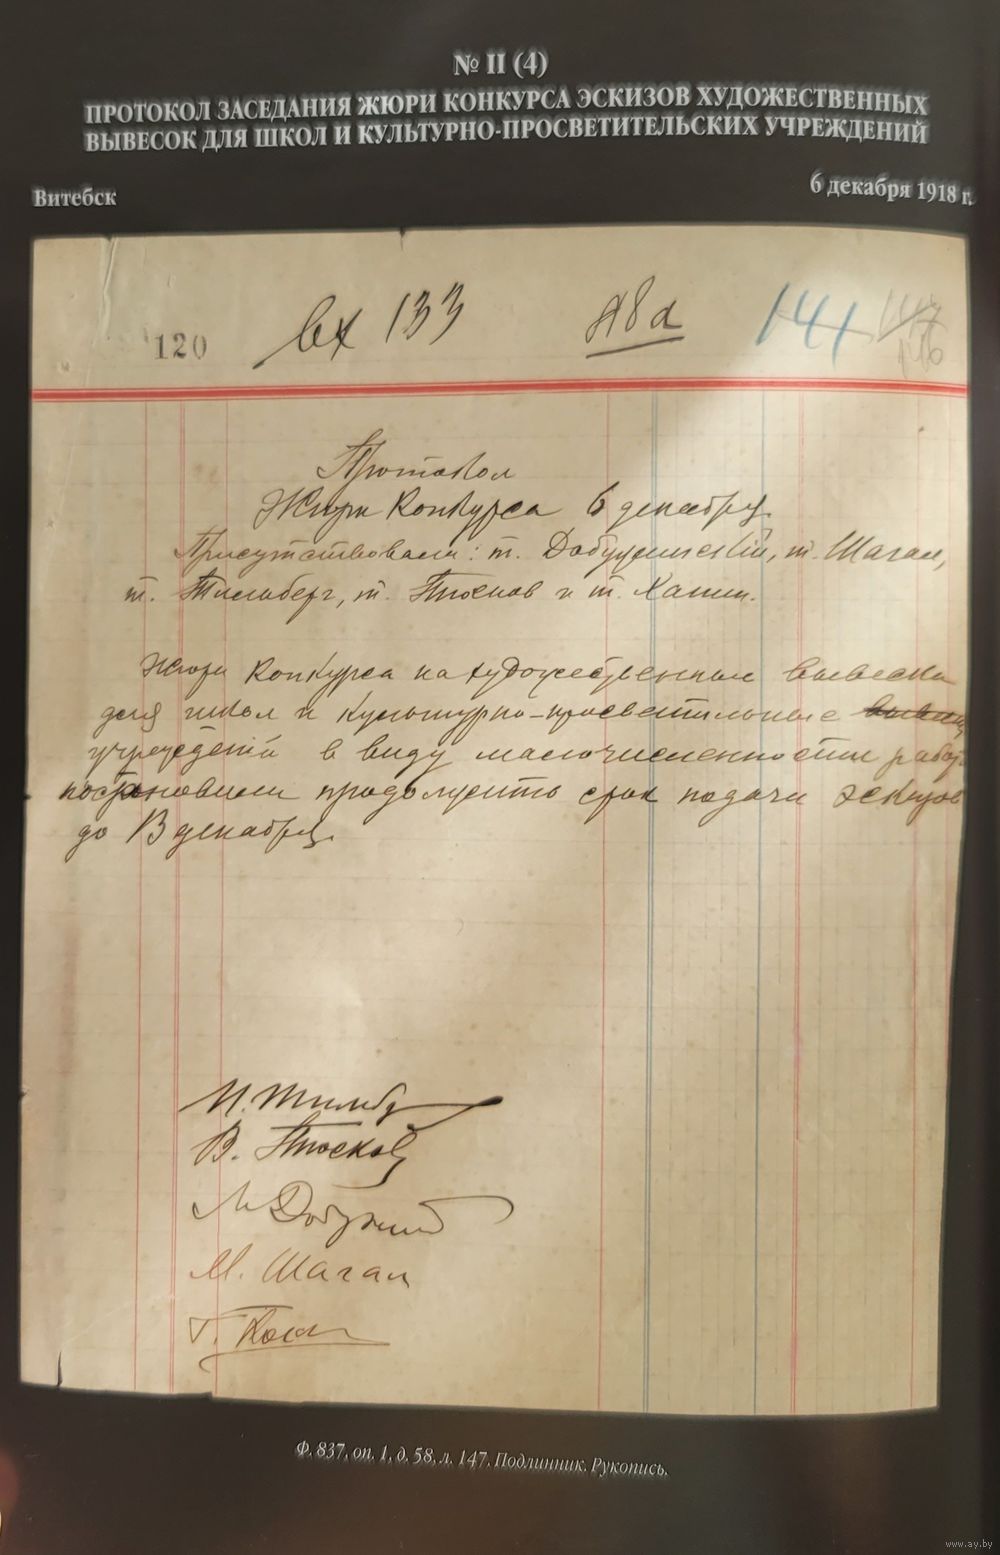 № II (4)
ПРОТОКОЛ ЗАСЕДАНИЯ ЖЮРИ КОНКУРСА ЭСКИЗОВ ХУДОЖЕСТВЕННЫХ
ВЫВЕСОК ДЛЯ ШКОЛ И КУЛЬТУРНО-ПРОСВЕТИТЕЛЬСКИХ УЧРЕЖДЕНИЙ
Витебск
6 декабря 1918 г.
120 вх 133 141
Протокол
Жюри Конкурса 6 декабря.
Присутствовали: т. Добужинскій, т. Шагал,
т. Тильберг, т. Плесков и т.
Жюри Конкурса на художественныя вывески
для школ и культурно-просветильные
учреждений в виду малочисленности работ
постановили продолжить срок подачи эскизов
до 13 декабря.
М. Шагал
Ф. 837, оп. 1, д. 58, л. 147. Подлинник. Рукопись.
www.ay.by